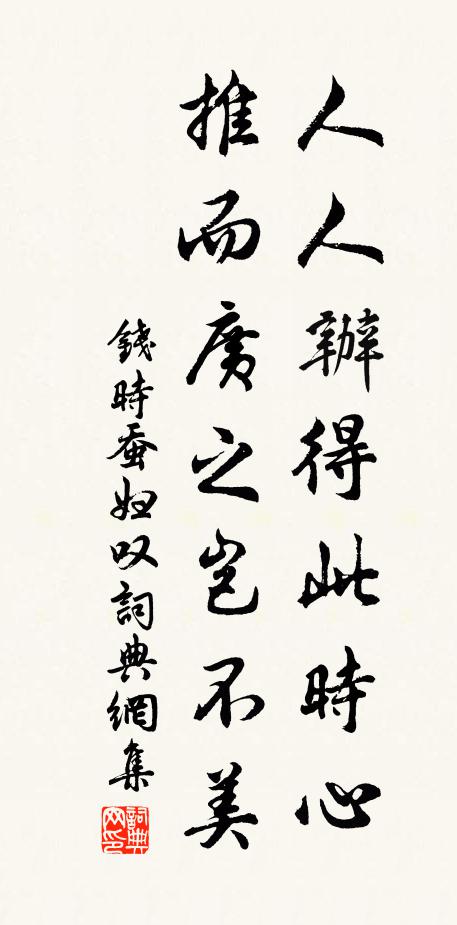 人人辦得此時心
推而廣之豈不美
錢時蚕妇叹詞典網集
詞典网印